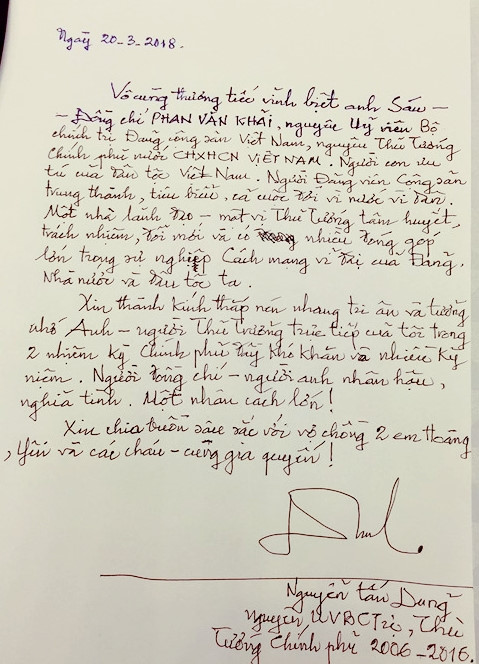 Ngày 20-3-2018.
Vô cùng thương tiếc vĩnh biệt anh Sáu -
- Đồng chí PHAN VĂN KHẢI, nguyên Uỷ viên Bộ
chính trị Đảng cộng sản Việt Nam, nguyên Thủ Tướng
Chính phủ nước CHXHCN VIỆT NAM. Người con ưu
tú của dân tộc Việt Nam. Người Đảng viên Cộng sản
trung thành, tiêu biểu, cả cuộc đời vì nước vì dân.
Một nhà lãnh đạo - một vị Thủ Tướng tâm huyết,
trách nhiệm, đổi mới và có nhiều đóng góp
lớn trong sự nghiệp Cách mạng vĩ đại của Đảng,
Nhà nước và dân tộc ta.
Xin thành kính thắp nén nhang tri ân và tưởng
nhớ Anh - người Thủ Trưởng trực tiếp của tôi trong
2 nhiệm kỳ Chính phủ đầy khó khăn và nhiều kỷ
niệm. Người đồng chí - người anh nhân hậu,
nghĩa tình. Một nhân cách lớn!
Xin chia buồn sâu sắc với vợ chồng 2 em Hoàng
, Yến và các cháu - cùng gia quyến!
Nguyễn Tấn Dũng
Nguyên UVBCTrị, Thủ
Tướng Chính phủ 2006-2016.